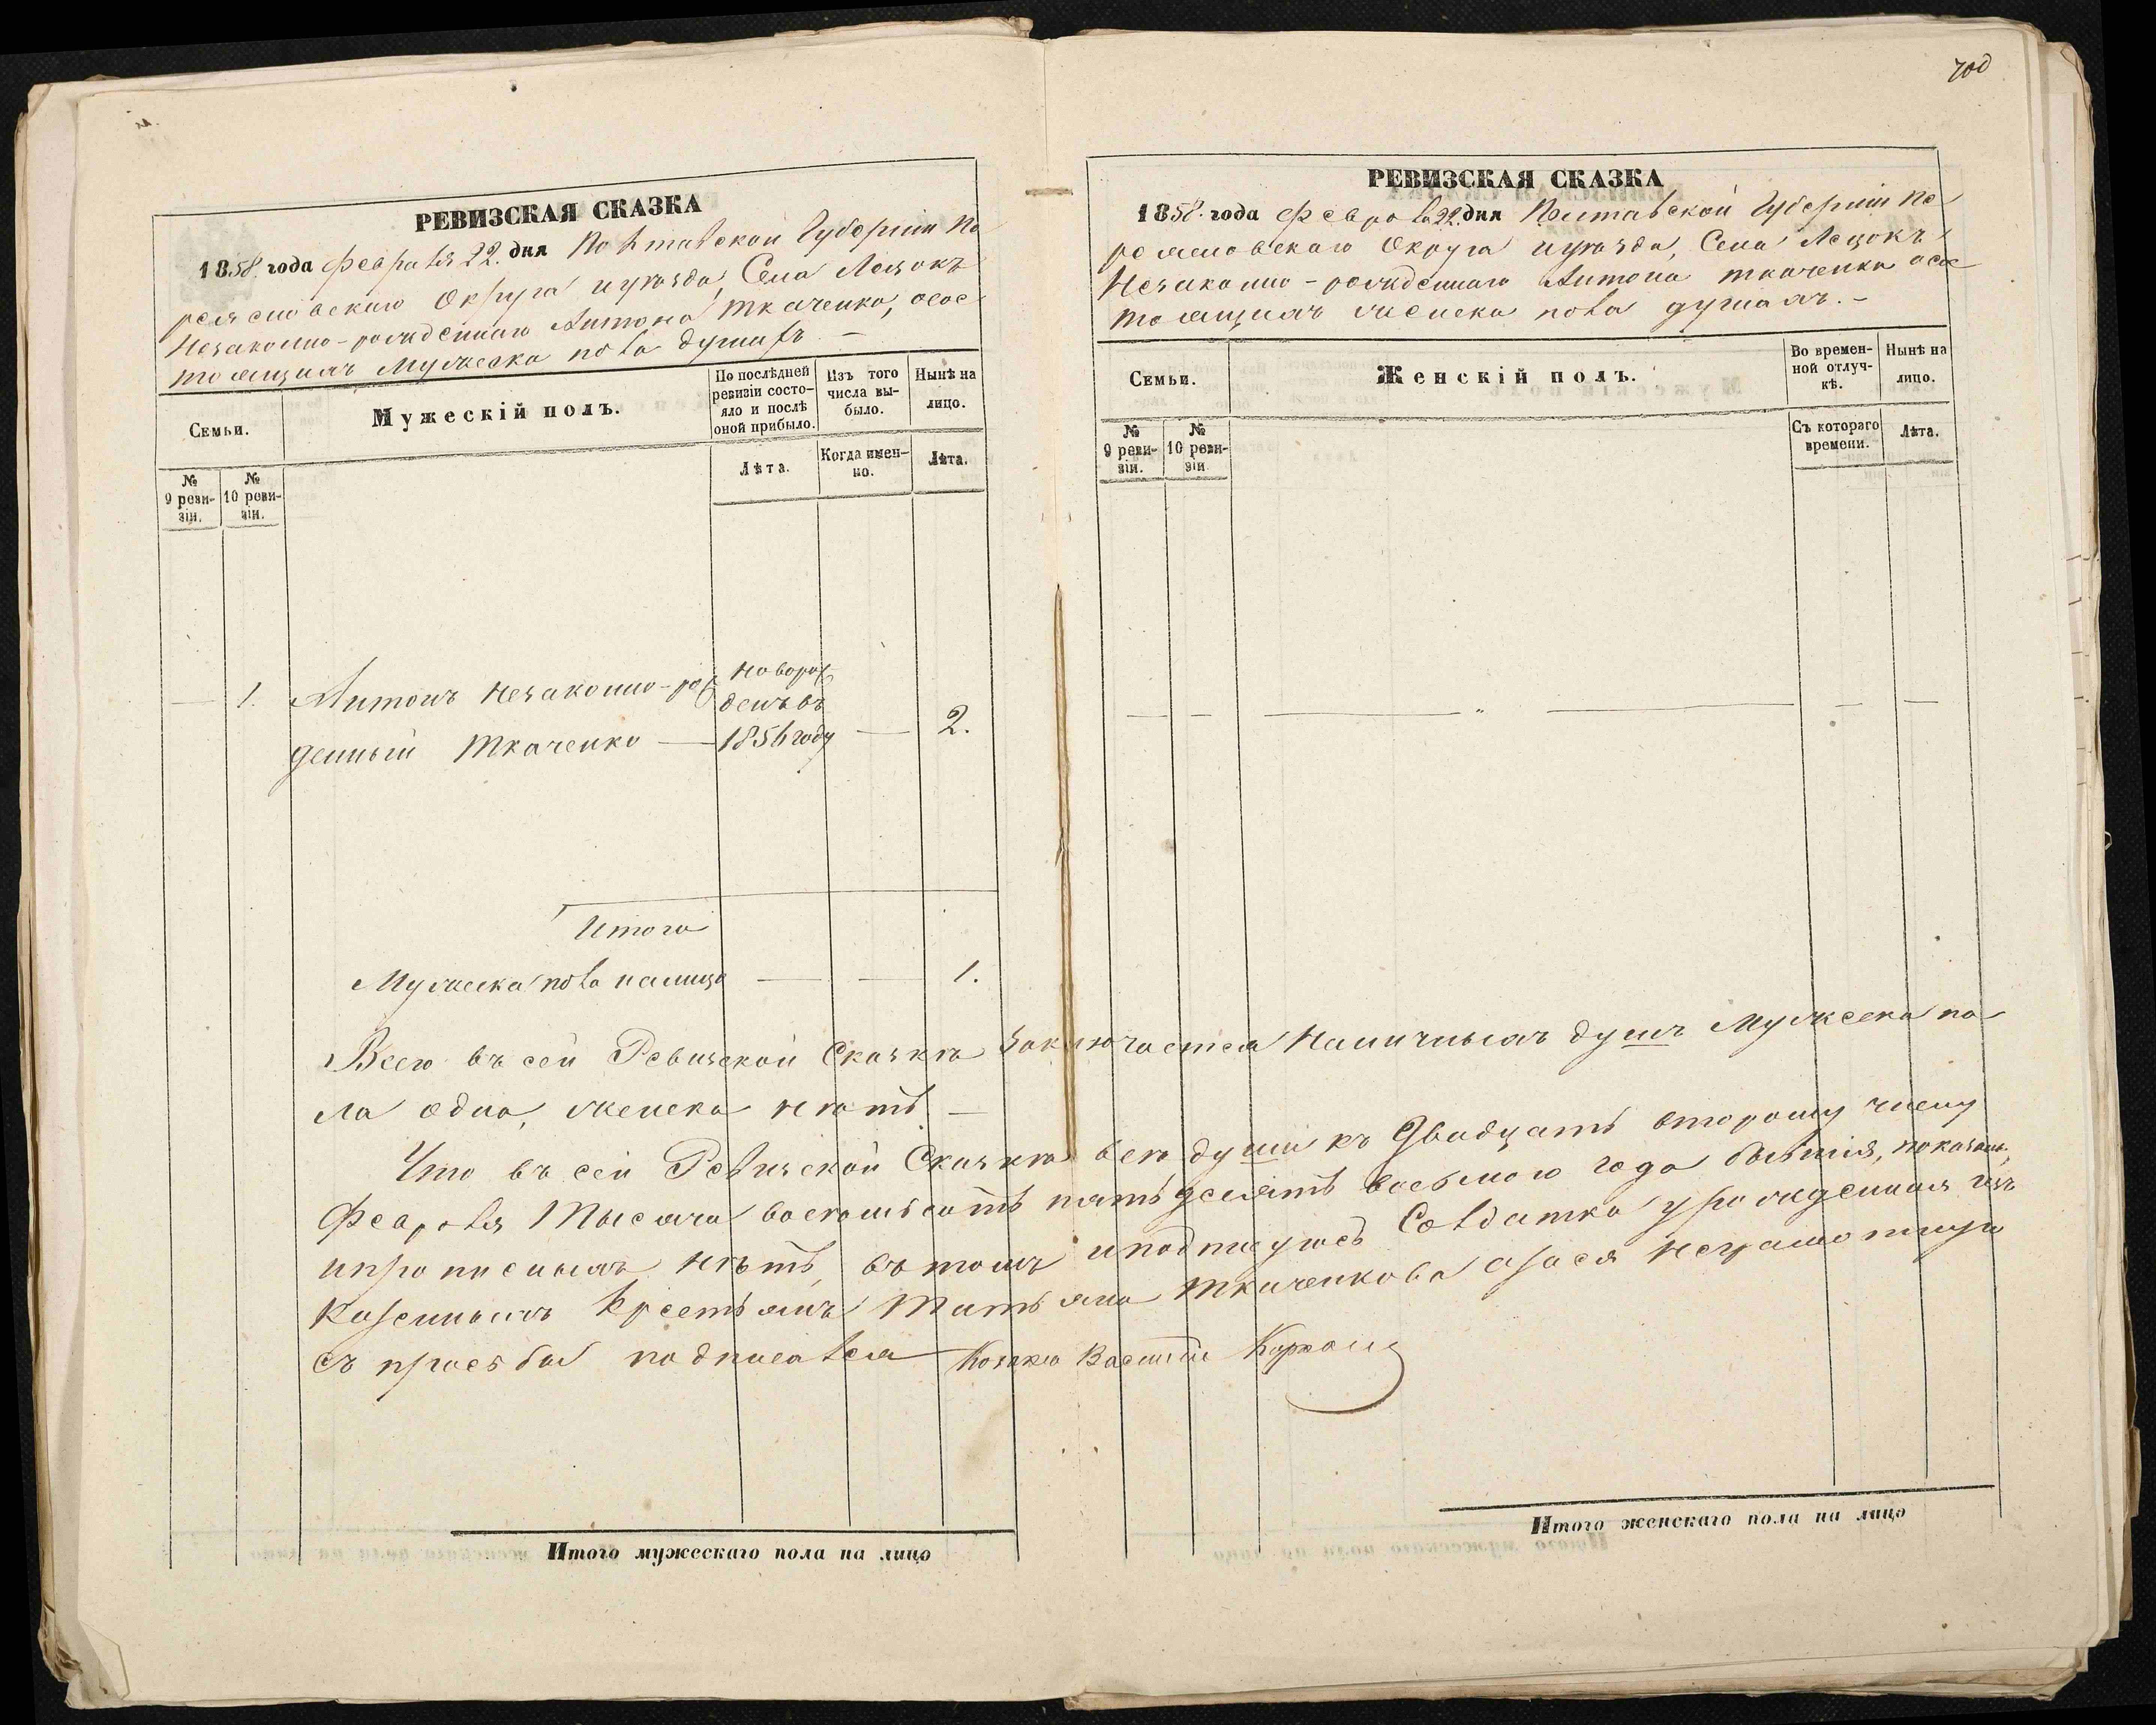 700
РЕВИЗСКАЯ СКАЗКА
1858. года Февраля 22. дня Полтавской Губерніи Пе
реяславскаго Округа и уѣзда, Села Лецокъ
Незаконно-рожденнаго Антона Ткаченка, осос
тоящихъ Мужеска пола душахъ. –
Семьи.
Мужескій полъ.
По послѣдней ревизіи состо-яло и послѣ оной прибыло.
Изъ того числа вы-было.
Нынѣ на лицо.
№ 9 реви-зіи.
№ 10 реви-зіи.
Лѣта.
Когда имен-но.
Лѣта.
— 1. Антонъ незаконно-рож новорож
денъ въ
денный Ткаченко — 1856 году — 2.
Итого
Мужеска пола налицо — — 1.
РЕВИЗСКАЯ СКАЗКА
1858. года Февраля 22. дня Полтавской Губерніи Пе
реяславскаго Округа и уѣзда, Села Лецокъ
Незаконно-рожденнаго Антона Ткаченка осос
тоящихъ женска пола душахъ. –
Семьи.
Женскій полъ.
Во времен-ной отлуч-кѣ.
Нынѣ на лицо.
№ 9 реви-зіи.
№ 10 реви-зіи
Съ котораго времени.
Лѣта.
— — — „ — — —
Всего въ сей Ревизской Сказкѣ заключается Наличныхъ душъ Мужеска по
ла одна, женска нѣтъ —
Что въ сей Ревизской Сказкѣ всѣ души къ Двадцать второму числу
Февраля Тысяча восемьсотъ пятьдесятъ восьмаго года бытія, показаны,
и прописныхъ нѣтъ, въ томъ и подписуюсь Солдатка урожденная изъ
Казенныхъ Крестьянъ Татьяна Ткаченкова а за ся неграмотную
съ прозьбы подписался Козакъ Василій
Итого мужескаго пола на лицо
Итого женскаго пола на лицо